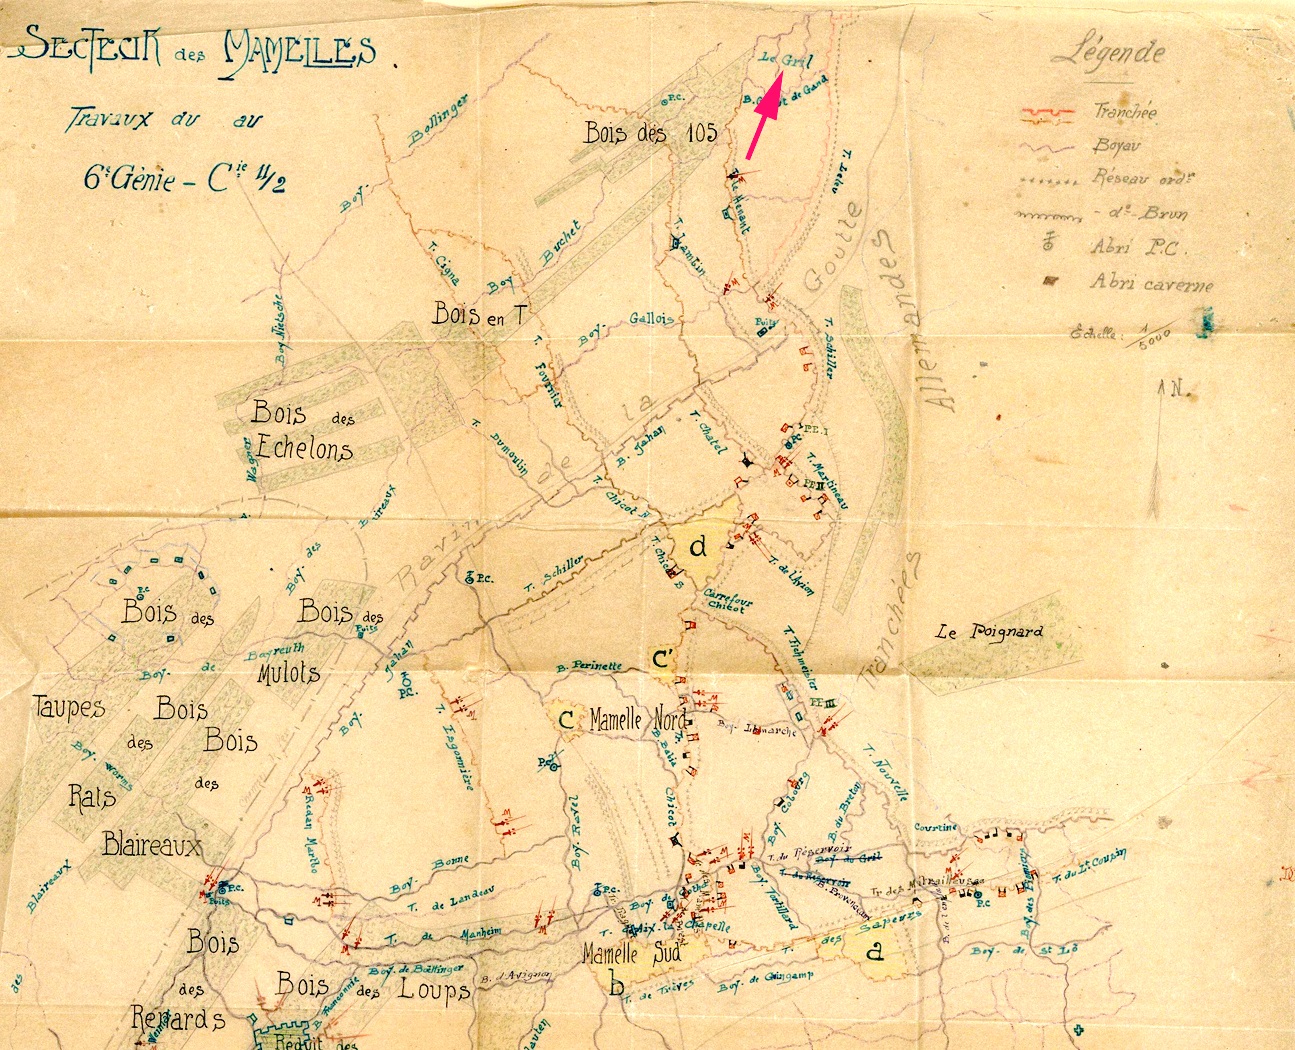 Secteur des Mamelles.
Travaux du au
6e Génie - Cie 11/2
Légende
Tranchée
Boyau
Réseau ordre
- do - Brun
Abri P.C.
Abri caverne
Echelle: 1/5000
N.
Le Gril
B. Gant de Gand
P.C.
Bois des 105
Bollinger
Boy.
T. Lelev
T. Lantin
Gouille
T. Cigna
Boy. Buchet
Bois en T
Boy Nietsche
Boy. Gallois
Puits
T. Schiller
Allemandes
T. Fournier
la
Bois des
Echelons
Wagner
T. Dumoulin
B. Jahan
T. Chatel
P.C.
P.E. I
T. Martineau
P.E. II
de
T. Chicot N
Ravin
Boy. des Blaireaux
d
T. Schiller
T. Chicot S
Carrefour
Chicot
P.C.
P.C.
Bois des
Bois des
Puits
Mulots
Boy. de Bayreuth
Boy. Jahan
P.C.
Tranchées
Le Poignard
C'
B. Perinette
T. Eichmeister
P.E. III
Taupes
Bois
des
Bois
des
C
Mamelle Nord
Boy. Lamarche
T. Esgonnière
Boy. Worms
Rats
P.C.
T. Nouvelle
Redan Martho
Chicot
Boy. Cobourg
B. du Breton
Courtine
Blaireaux
Boy. Ravel
Boy. Bonne
T. du Réservoir
Boy. du Gril
T. du Réservoir
Blaireaux
P.C.
Puits
T. de Landeau
P.C.
Boy. Tortillard
Tr. des Mitrailleuses
P.C.
T. du Lt Cousin
Boy. de
Aix-la Chapelle
T. de Manheim
T. des Sapeurs
Bois
des
Renards
Boy. de Bœllinger
Bois des Loups
B. d'Avignon
Mamelle Sud
b
a
Boy. de St Lô
T. de Trèves
Boy. de Guingamp
B. Franconnie
Réduit des
des